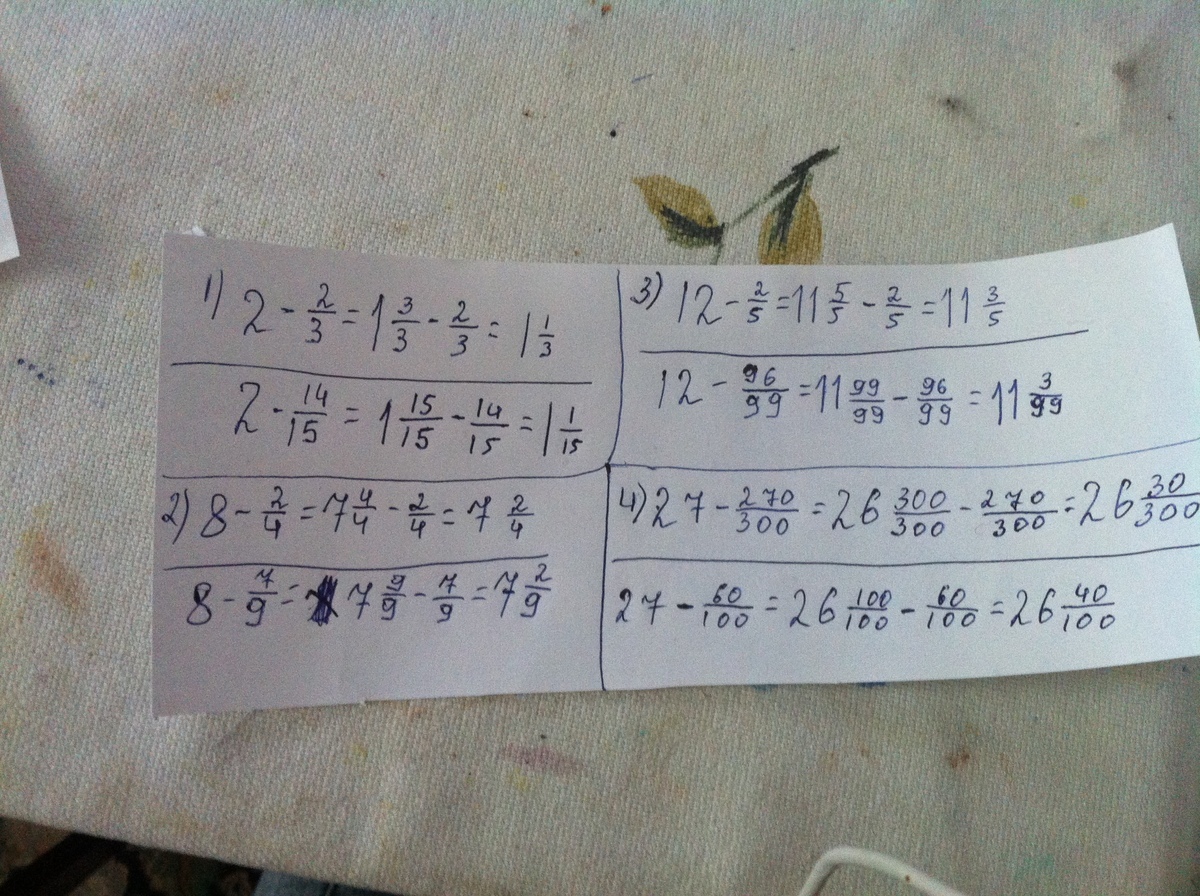 1) 2 - 2/3 = 1 3/3 - 2/3 = 1 1/3
2 - 14/15 = 1 15/15 - 14/15 = 1 1/15
2) 8 - 2/4 = 7 4/4 - 2/4 = 7 2/4
8 - 7/9 = 7 9/9 - 7/9 = 7 2/9
3) 12 - 2/5 = 11 5/5 - 2/5 = 11 3/5
12 - 96/99 = 11 99/99 - 96/99 = 11 3/99
4) 27 - 270/300 = 26 300/300 - 270/300 = 26 30/300
27 - 60/100 = 26 100/100 - 60/100 = 26 40/100